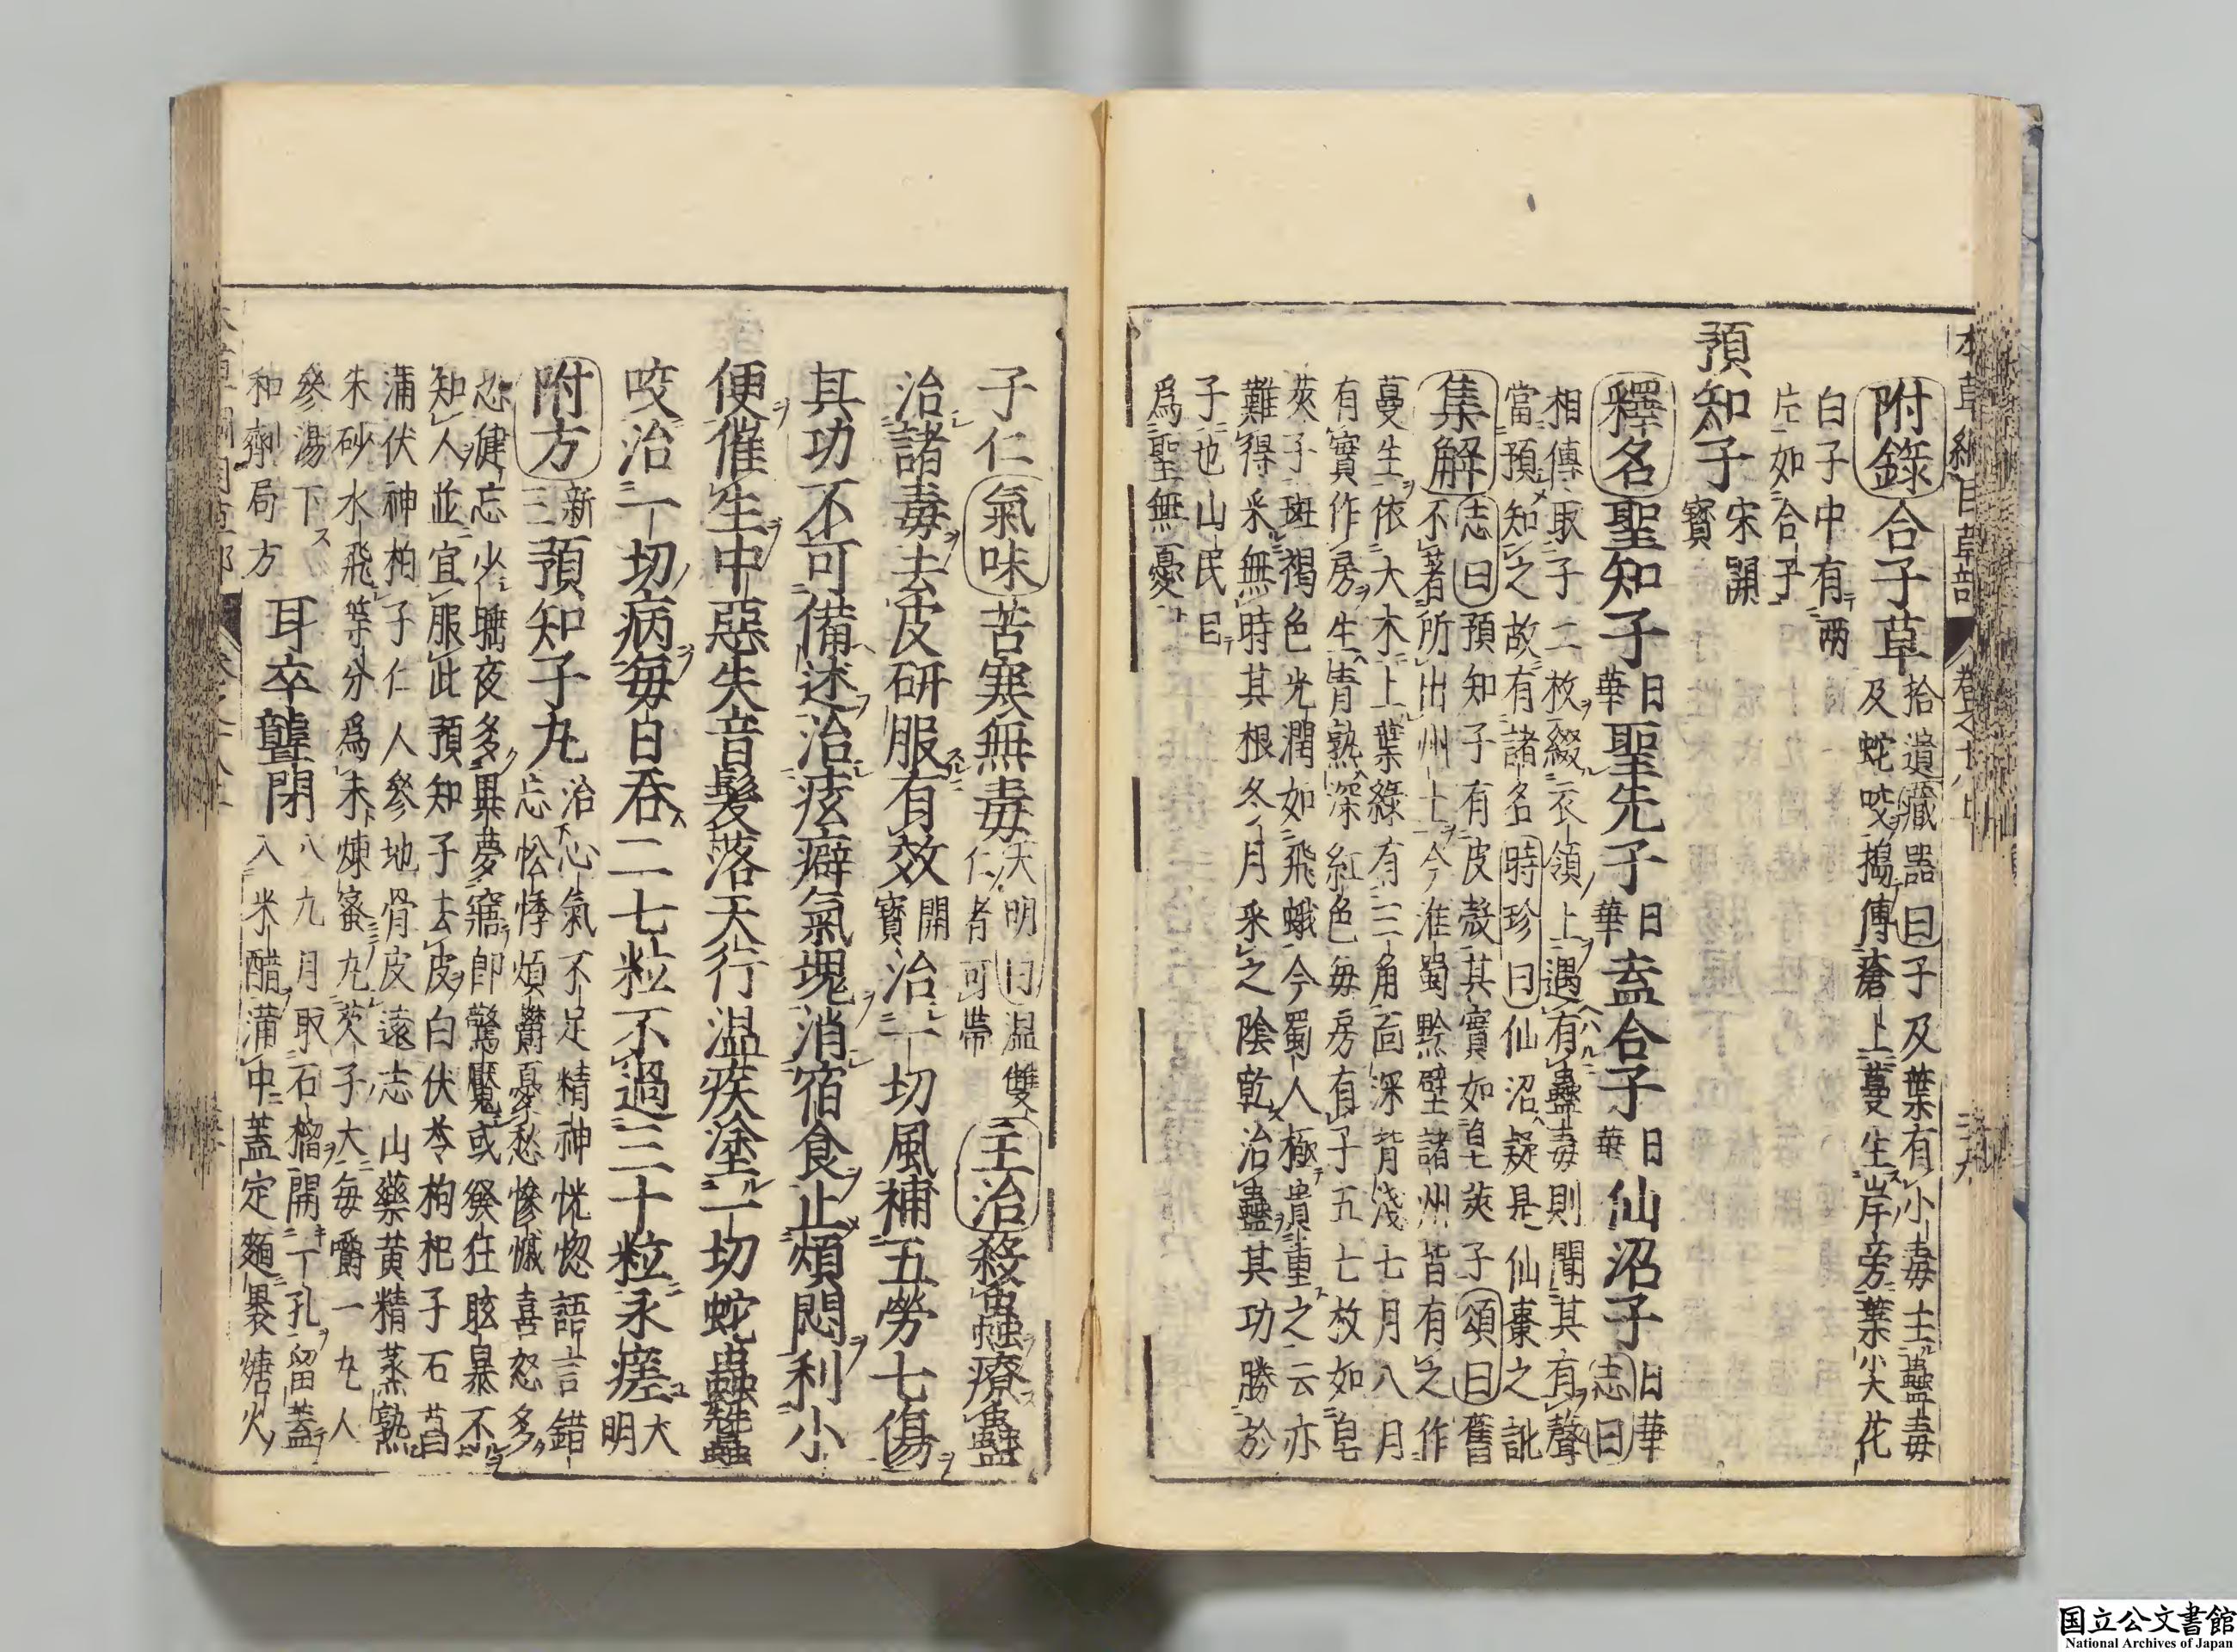 本草綱目草部 卷之十八上
附錄合子草
拾遺藏器曰子及葉有小毒主蠱毒
及蛇咬搗傅瘡上蔓生岸旁葉尖花
白子中有兩
片如合子
預知子
宋開
寶
釋名聖知子日華聖先子日華盍合子日華仙沼子日華
志曰
相傳取子二枚綴衣領上遇有蠱毒則聞其有聲
當預知之故有諸名時珍曰仙沼疑是仙棗之訛
集解
志曰預知子有皮殼其實如皂莢子頌曰舊
不著所出州土今淮蜀黔壁諸州皆有之作
蔓生依大木上葉綠有三角面深背淺七月八月
有實作房生青熟深紅色每房有子五七枚如皂
莢子斑褐色光潤如飛蛾今蜀人極貴重之云亦
難得采無時其根冬月采之陰乾治蠱其功勝於
子也山民目
爲聖無憂
子仁氣味苦寒無毒
大明曰温雙
仁者可帶
主治殺蟲療蠱
治諸毒去皮研服有效開寶治一切風補五勞七傷
其功不可備述治痃癖氣塊消宿食止煩悶利小
便催生中惡失音髮落天行温疾塗一切蛇蟲蠶
咬治一切病每日吞二七粒不過三十粒永瘥大明
附方新三預知子丸
治心氣不足精神恍惚語言錯
忘忪悸煩鬱憂愁慘慽喜怒多
恐健忘少睡夜多異夢寤即驚魘或發狂眩暴不
知人並宜服此預知子去皮白伏苓枸杞子石菖
蒲伏神柏子仁人參地骨皮遠志山藥黃精蒸熟
朱砂水飛等分爲末煉蜜丸芡子大每嚼一丸人
參湯下
和劑局方
耳卒聾閉
八九月取石榴開一孔留蓋
入米醋滿中蓋定麵裹煻火
国立公文書館
National Archives of Japan